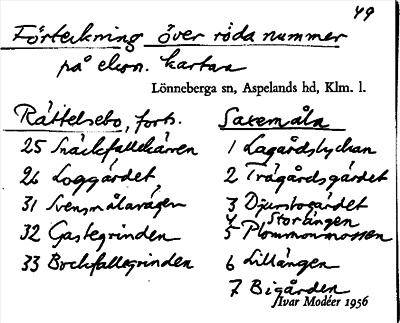 49
Förteckning över röda nummer
på ekon. kartan
Lönneberga sn, Aspelands hd, Klm. l.
Råttelsebo, forts.
25 Snäckfallekärren
26 Loggärdet
31 Svensmålavägen
32 Gastegrinden
33 Bockfallegrinden
Saxemåla
1 Lagårdslyckan
2 Trägårdsgärdet
3 Djurstogärdet
4 Storängen
5 Plommonmossen
6 Lillängen
7 Bigården
Ivar Modéer 1956